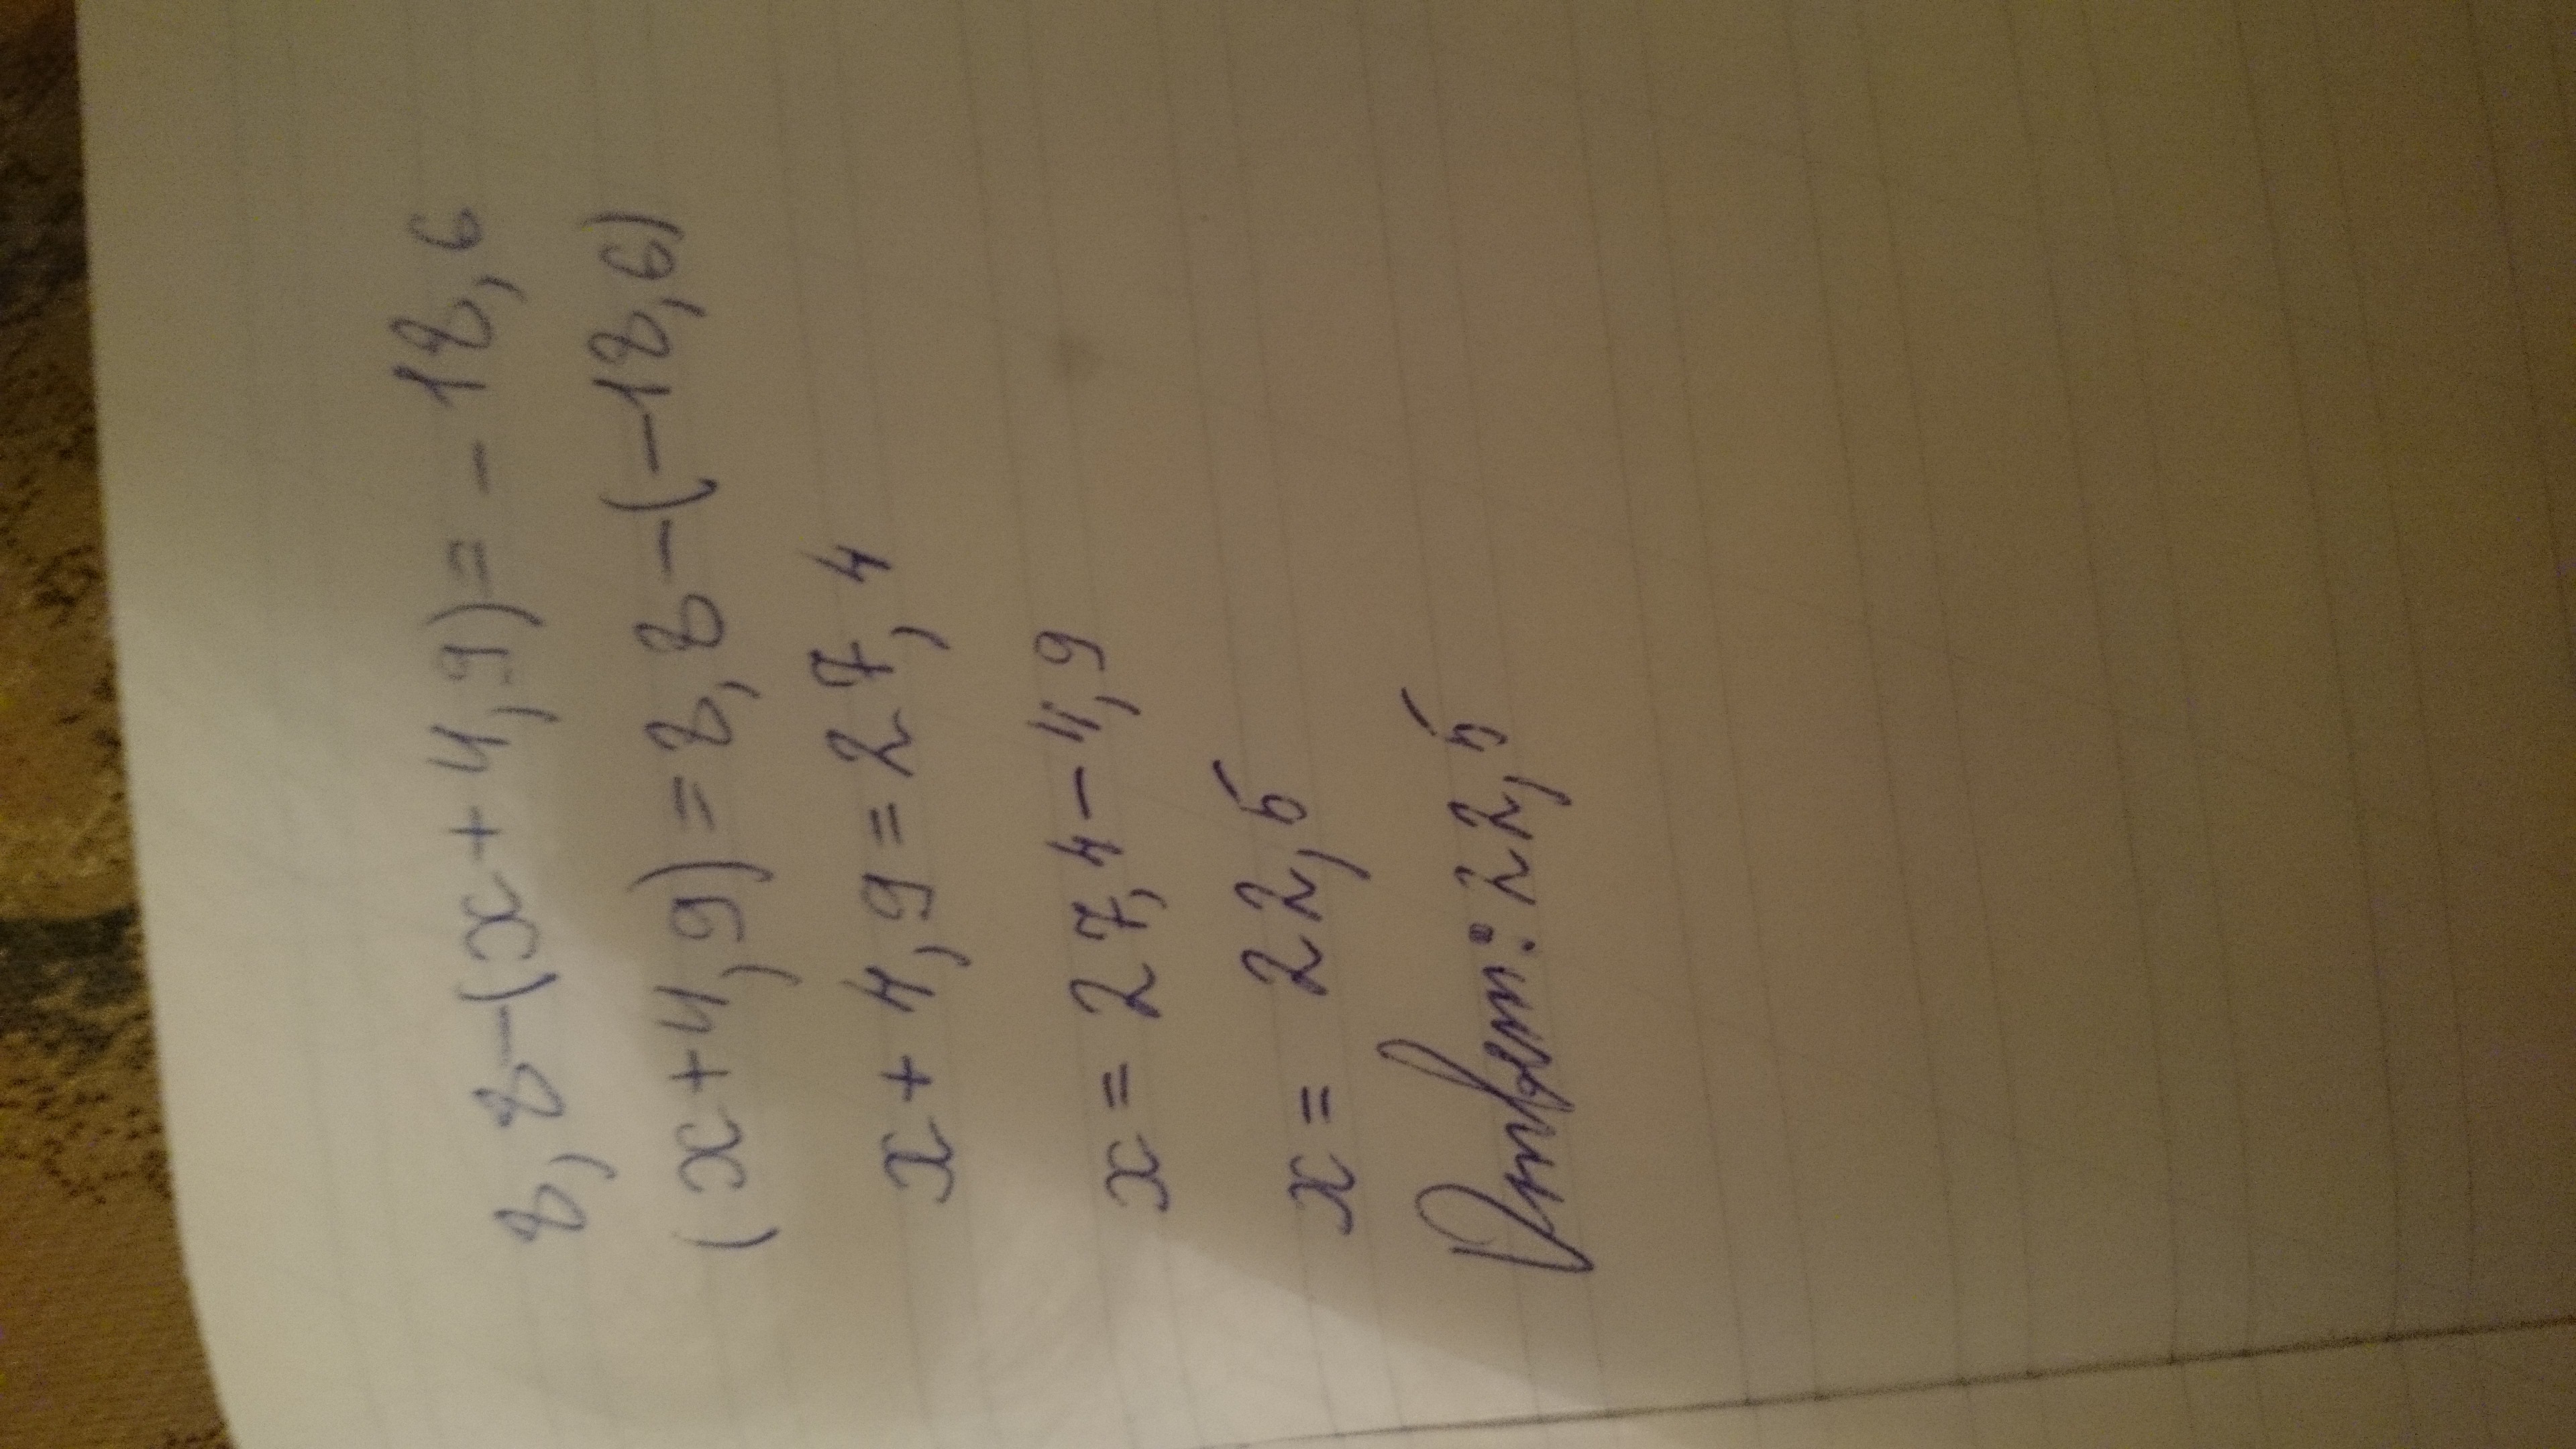 8,8-(x+4,9)=-18,6
(x+4,9)=8,8-(-18,6)
x+4,9=27,4
x=27,4-4,9
x=22,5
Ответ: 22,5